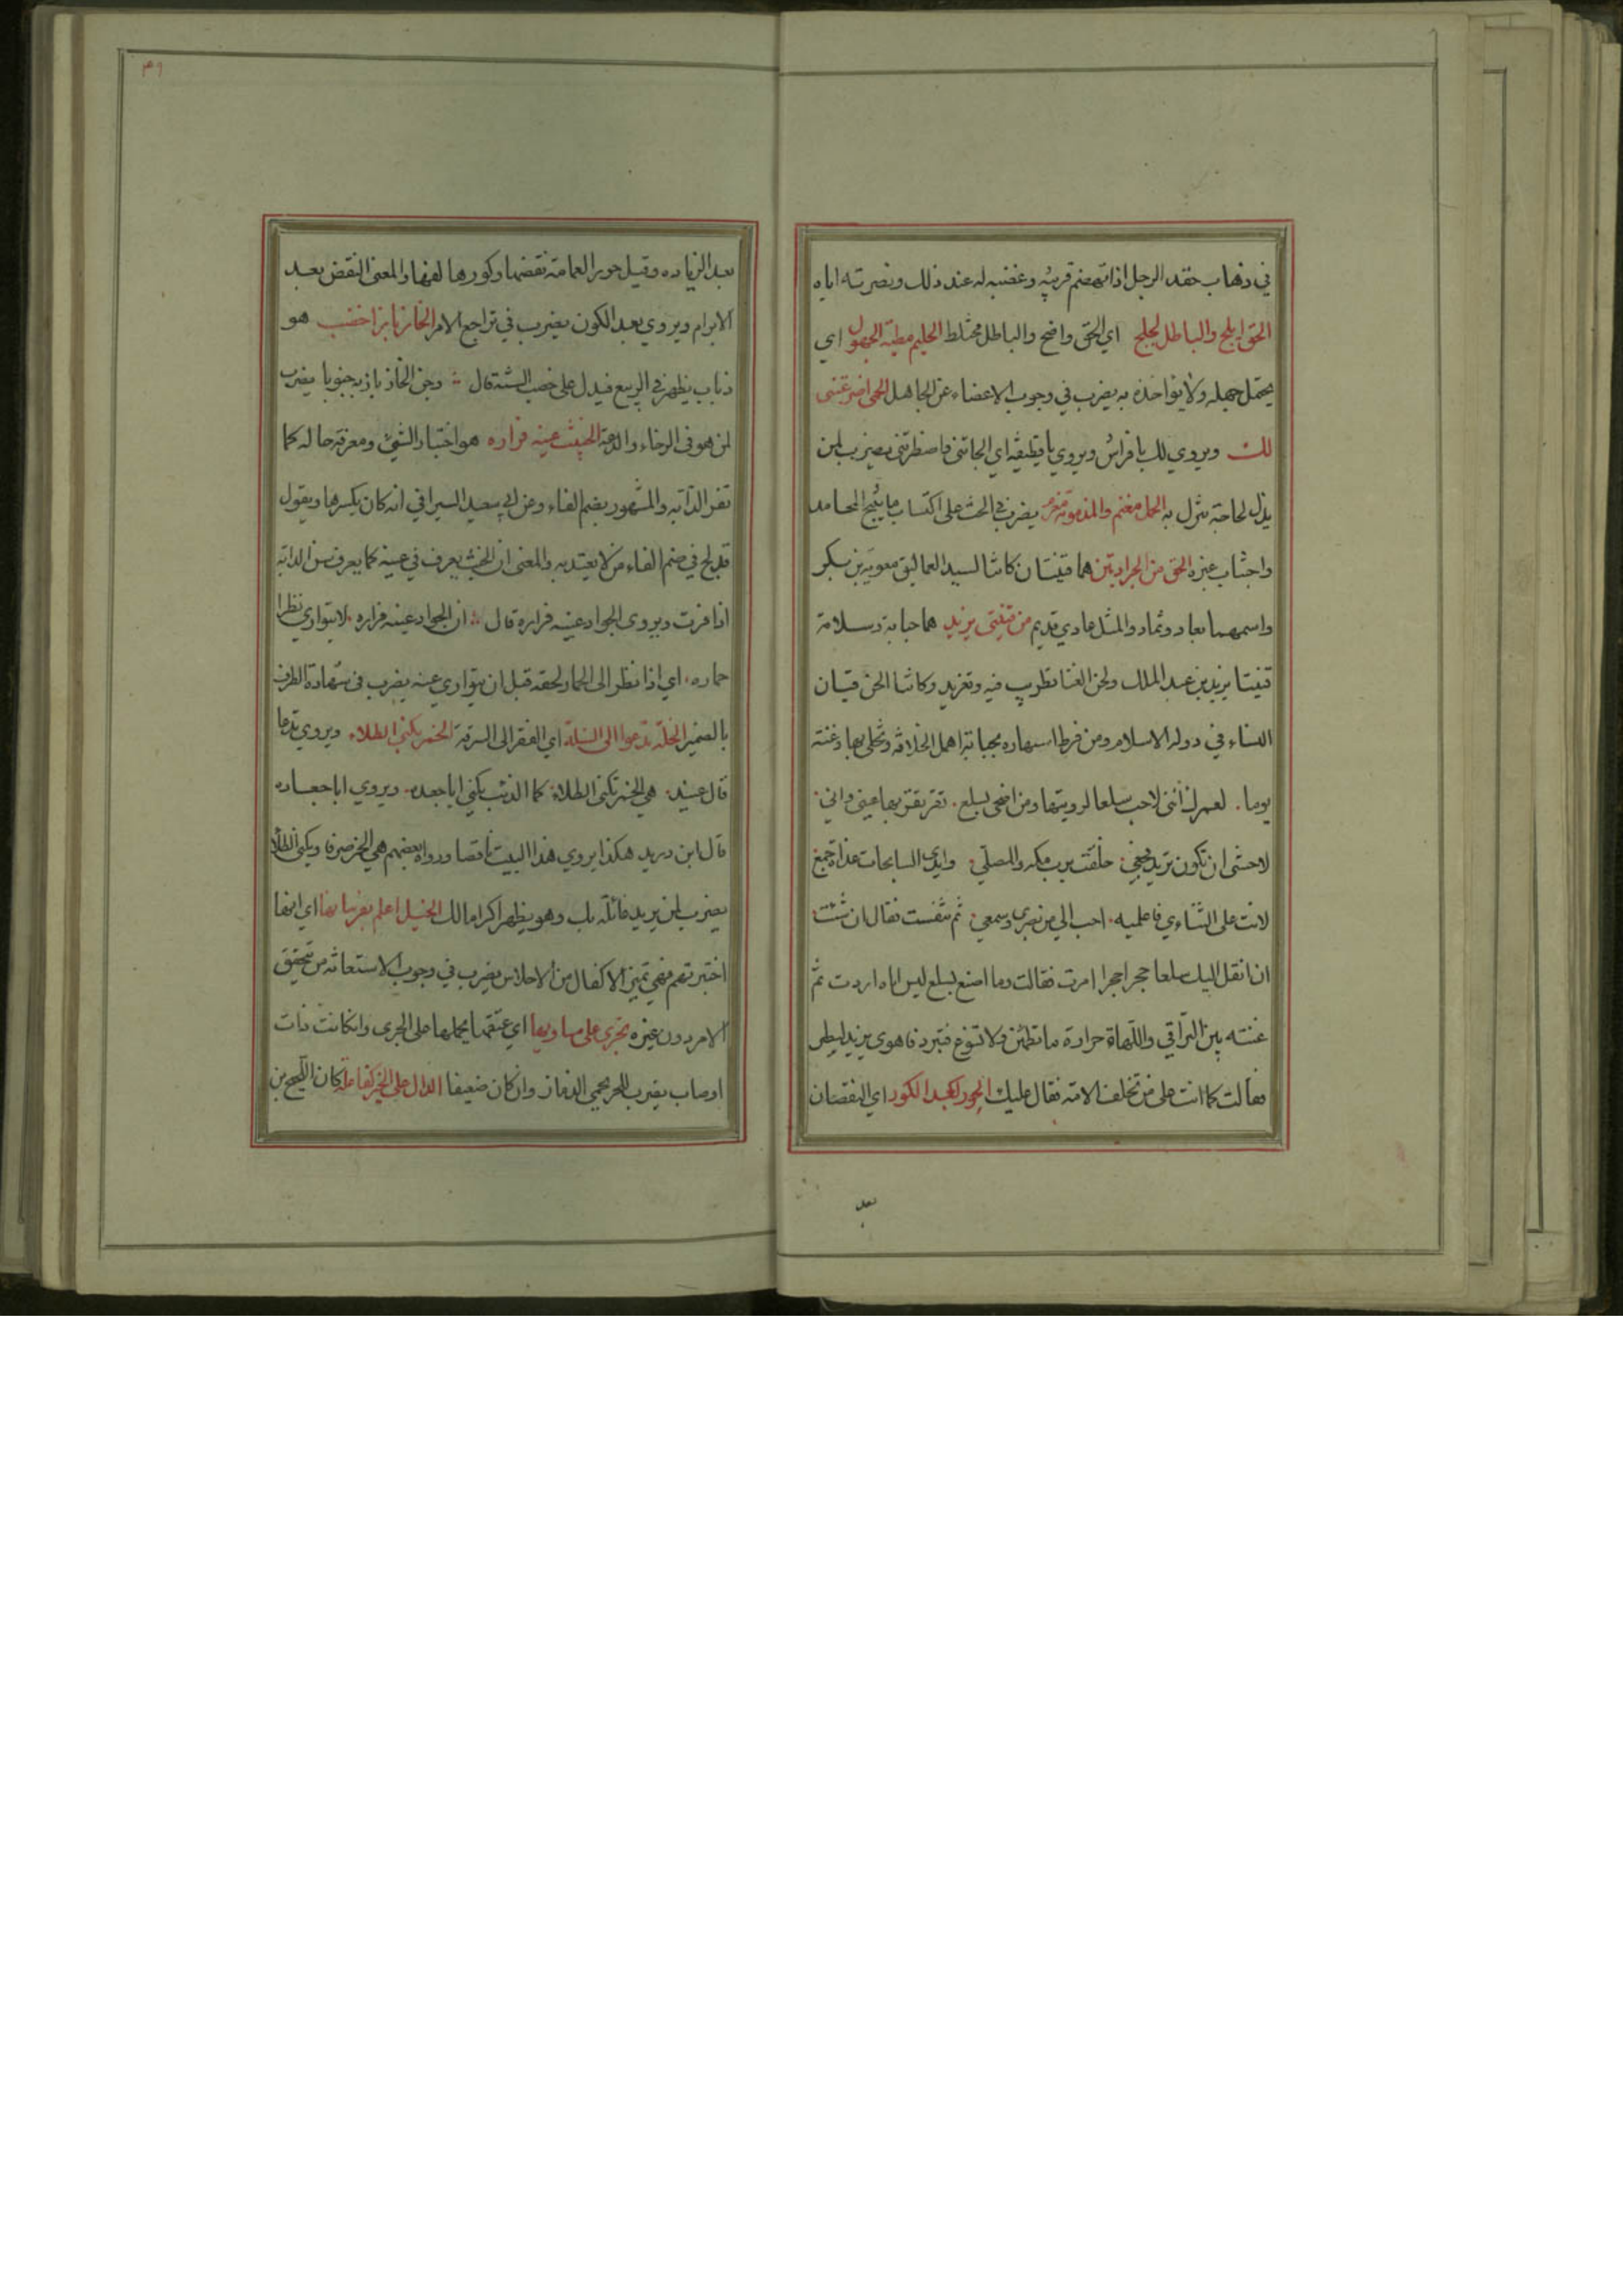 في ذهاب حقد الرجل اذا تهضم قريبه وغضبه له عند ذلك ونصرته اياه
الحق ابلج والباطل لجلج اي الحق واضح والباطل مختلط الحليم مطية الجهول اي
يحتمل جهله ولا يؤاخذه به يضرب في وجوب الاغضاء عن الجاهل الحمى اضرعتنى
لك ويروي لك يا فراش ويروي يا قطيفة اي الجاتنى فاضطرتنى يضرب لمن
يذل لحاجة تنزل به الحمد مغنم والمذمة مغرم يضرب في الحث على اكتساب ما ينتج المحامد
واجتناب غيره الحق من الجرادتين هما قينتان كانتا لسيد العماليق معوية بن بكر
واسمهما بعاد وثماد والمثل عادي قديم من قينتى يزيد هما حبابة وسلامة
قينتا يزيد بن عبد الملك ولحن الغنا تطريب فيه وتغريد وكانتا الحن قيان
النساء في دولة الاسلام ومن فرط استهاره بحبابة اهمل الخلافة وتخلى بها وغنته
يوما . لعمرك اننى لاحب سلعا لرويتها ومن اضحى بسلع . تقر بقربها عيني واني
لاخشى ان تكون تريد فجعي . حلفت برب مكه والمصلى . وايدي السابحات غداة جمع
لانت على التنائي فاعلميه . احب الي من بصري وسمعي . ثم تنفست فقال ان شئت
ان انقل اليك سلعا حجرا حجرا امرت فقالت وما اصنع بسلع ليس اياه اردت ثم
غنته بين التراقي واللهاة حرارة ما تطمئن ولا تسوغ فتبرد فاهوى يزيد ليطير
فقالت كما انت على من تخلف الامة فقال عليك الحور بعد الكور اي النقصان
بعد
٣٩
بعد الزياده وقيل حور العمامة نقضها وكورها لفها والمعنى النقض بعد
الابرام ويروي بعد الكون يضرب في تراجع الامر الخازناز اخصب هو
ذباب يظهر في الربيع فيدل على خصب السنة قال وجن الخازباز به جنونا يضرب
لمن هو في الرخاء والدعة الخبيث عينه فراره هو اختبار الشيء ومعرفة حاله كما
تفر الدابة والمشهور بضم الفاء وعن ابي سعيد السيرافي انه كان يكسرها ويقول
قد لج في ضم الفاء من لا يعتد به والمعنى ان الخبث يعرف في عينه كما يعرف سن الدابة
اذا فرت ويروى الجواد عينه فراره قال ان الجواد عينه فراره . لا يتواري نظرا
حماره . اي اذا نظر الى الحمار لحقه قبل ان يتواري عنه يضرب في شهادة الطرف
بالضمير الخلة تدعوا الى السلة اي الفقر الى السرقة الخمر تكنى الطلاء ويروي تدعا
قال عبيد . هي الخمر تكنى الطلاء . كما الذئب يكنى اباجعده . ويروي اباجعاده
قال ابن دريد هكذا يروي هذا البيت ناقصا ورواه بعضهم هي الخمر صرفا ويكنى الطلا
يضرب لمن يريد غائلة بك وهو يظهر اكراما لك الخيل اعلم بفرسانها اي انها
اختبرتهم فهي تميز الاكفال من الاحلاس يضرب في وجوب الاستعانة من تحقق
الامر دون غيره تجري على مساويها اي عتقها يحملها على الجري وان كانت ذات
اوصاب يضرب للحر يحمي الذمار وان كان ضعيفا الدال على الخير كفاعله كان اللجيج بن